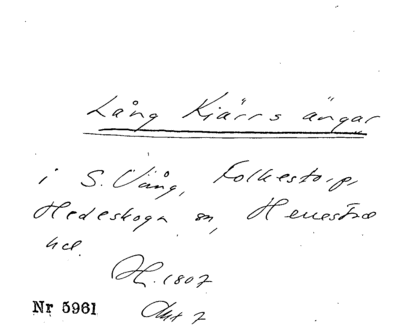 Lång Kiärrs ängar
i S. Vång, Folkestorp,
Hedeskoga sn, Herrestad
hd.
H. 1807
Nr 5961 Akt 7